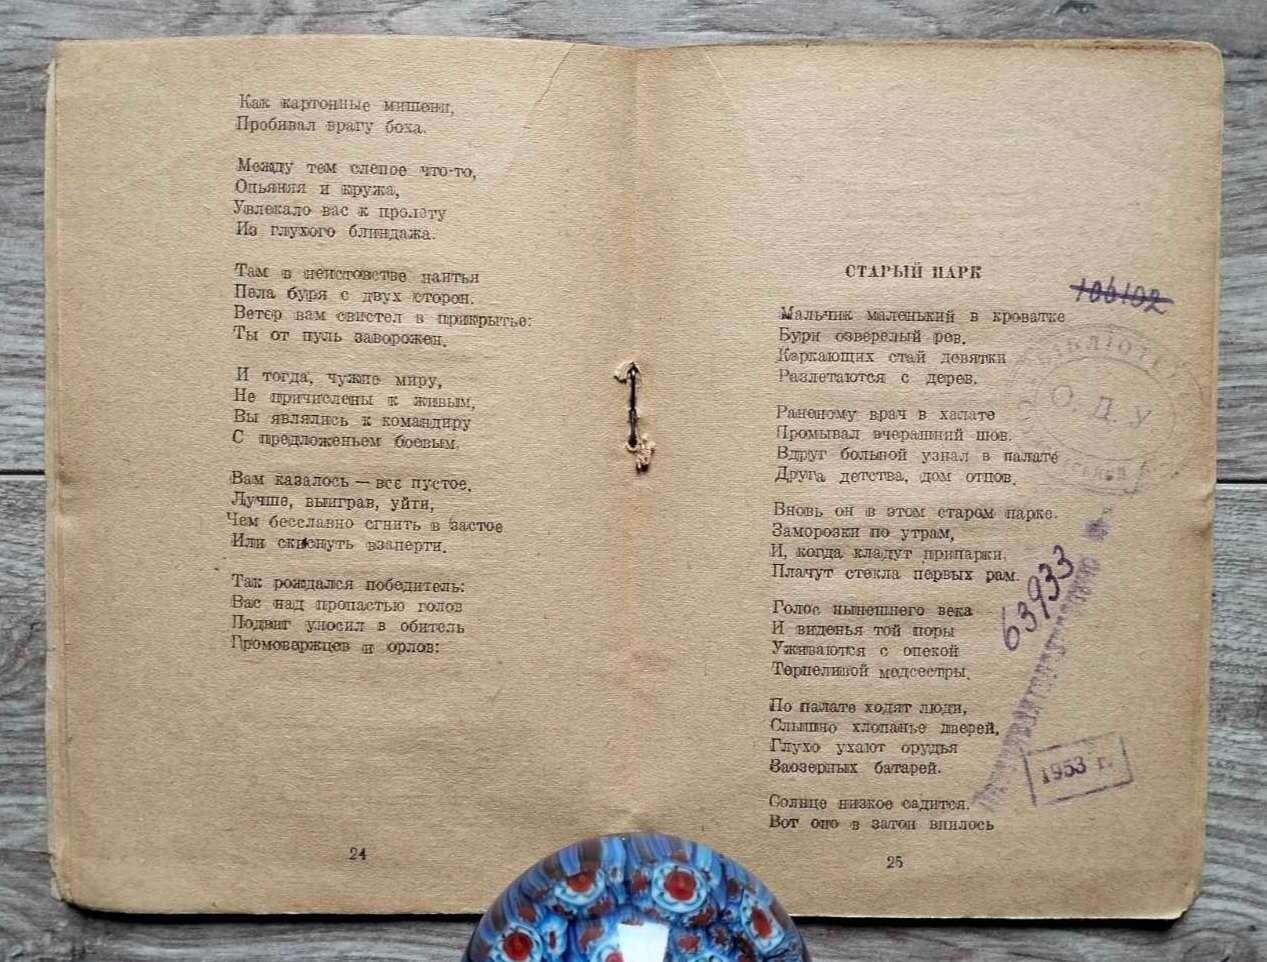 Как картонные мишени,
Пробивал врагу бока.
Между тем слепое что-то,
Опьяняя и кружа,
Увлекало вас к пролету
Из глухого блиндажа.
Там в неистовстве наитья
Пела буря с двух сторон.
Ветер вам свистел в прикрытье:
Ты от пуль заворожен.
И тогда, чужие миру,
Не причислены к живым,
Вы являлись к командиру
С предложеньем боевым.
Вам казалось — все пустое,
Лучше, выиграв, уйти,
Чем бесславно сгнить в застое
Или скиснуть взаперти.
Так рождался победитель:
Вас над пропастью голов
Подвиг уносил в обитель
Громовержцев и орлов:
24
СТАРЫЙ ПАРК
106102
Мальчик маленький в кроватке
Бури озверелый рев.
Каркающих стай девятки
Разлетаются с дерев.
Раненому врач в халате
Промывал вчерашний шов.
Вдруг больной узнал в палате
Друга детства, дом отцов.
Вновь он в этом старом парке.
Заморозки по утрам,
И, когда кладут припарки,
Плачут стекла первых рам.
Голос нынешнего века
И виденья той поры
Уживаются с опекой
Терпеливой медсестры.
По палате ходят люди,
Слышно хлопанье дверей,
Глухо ухают орудья
Заозерных батарей.
Солнце низкое садится.
Вот оно в затон впилось
25
О. Д. У
63933
1953 г.